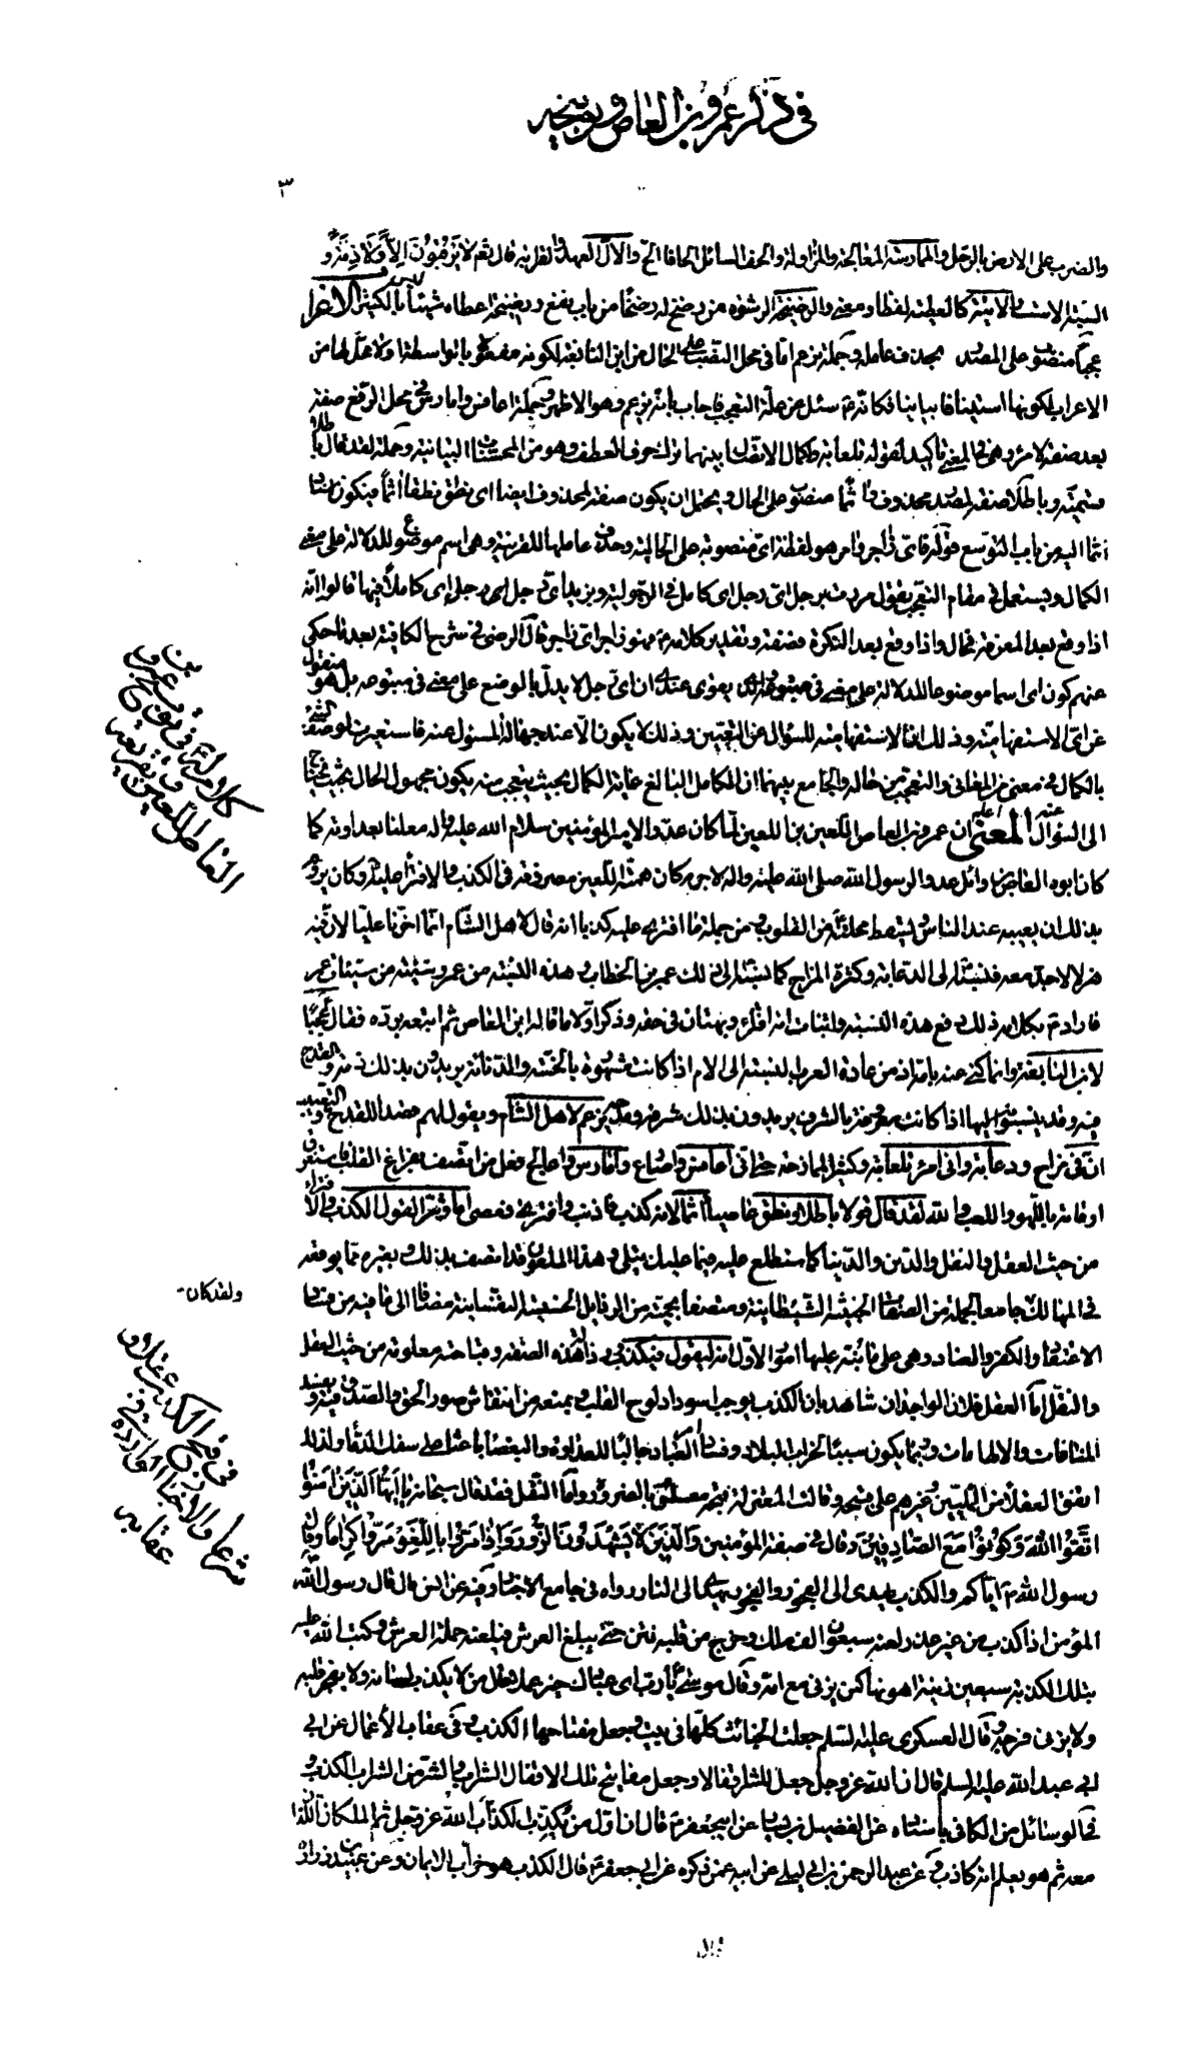 في ذكر عمرو بن العاص وتوبيخه
٣
والضرب على الارض بالرجل والممارسة المعالجة والمزاولة والحف السائل الحافا الح والالّ العهد والقرابة قال تعالى لا يرقبون الا ولا ذمة و
السبة الاست والاتية كالعطية لفظا ومعنى والرضيخة الرشوة من رضخ له رضخا من باب نفع ورضيخة اعطاه شيئا ليس بالكثير الاعراب
عجبا منصوب على المصدر بحذف عامله وجملة يزعم اما في محل النصب على الحال من ابن النابغة لكونه مفعولا بالواسطة او لا محل لها من
الاعراب لكونها استينافا بيانيا فكانه سئل عن علة التعجب فاجاب بانه يزعم وهو الاظهر وجملة اعافس وامارس في محل الرفع صفة
بعد صفة لامرء وهي في المعنى تاكيد لقوله تلعابة ولكمال الاتصال بينهما ترك حرف العطف وهو من المحسنات البيانية وجملة لقد قال باطلا
قسمية وباطلا صفة لمصدر محذوف واثما منصوب على الحال ويحتمل ان يكون صفة لمحذوف ايضا اى نطق نطقا اثما فيكون اسناد
اثما اليه من باب التوسع قوله فاى زاجر وامر هو لفظة اى منصوبة على الحالية وحذف عاملها للقرينة وهى اسم موضوع للدلالة على معنى
الكمال ويستعمل في مقام التعجب يقول مررت برجل اى رجل اى كامل في الرجولية وبزيد اى رجل اى كاملا فيها قالوا انه
اذا وقع بعد المعرفة فحال واذا وقع بعد النكرة فصفة وتقدير كلامه فهو زاجر اى زاجر قال الرضى في شرح الكافية بعد ما حكى
عنهم كون اى اسما موضوعا للدلالة على معنى في متبوعه الذى يقوى عندى ان اى رجل لا يدل بالوضع على معنى في متبوعه بل هو منقول
عن اى الاستفهامية وذلك ان الاستفهامية للسؤال عن التعيين وذلك لا يكون الا عند جهالة المسئول عنه فاستعيرت لوصف الشئ
بالكمال في معنى من المعانى والتعجب من حاله والجامع بينهما ان الكامل البالغ غاية الكمال بحيث يتعجب منه يكون مجهول الحال بحيث يحتاج
الى السؤال عنه المعنى اعلم ان عمرو بن العاص اللعين بن اللعين لما كان عدوا لامير المؤمنين سلام الله عليه واله معلنا بعداوته كما
كان ابوه العاص بن وائل عدوا لرسول الله صلى الله عليه واله لا جرم كان همة اللعين مصروفة في الكذب والافتراء عليه وكان يروم
بذلك ان يعيبه عند الناس ويسقط محله من القلوب ومن جملة ما افترى عليه كذبا انه قال لاهل الشام انما اخرنا عليا لان فيه
هزلا لا جد معه فنسبه الى الدعابة وكثرة المزاح كما نسبه الى ذلك عمر بن الخطاب وهذه النسبة من عمرو سيئة من سيئات عمر
فاراد بكلامه ذلك دفع هذه النسبة واثبات انه افتراء وبهتان في حقه وذكر اولا ما قاله ابن العاص ثم اتبعه برده فقال عجبا
لابن النابغة وانما كنى عنه بامه اذ من عادة العرب النسبة الى الام اذا كانت مشهورة بالخسة والدنائة يريدون بذلك ذمه والقدح
فيه وقد ينسبون اليها اذا كانت معروفة بالشرف يريدون بذلك شرفه ومدحه يزعم لاهل الشام ويقول لهم قصدا للقدح والتعييب
ان في مزاح ودعابة وانى امرء تلعابة وكثير الممازحة حتى انى اعافس واصارع وامارس واعالج فعل من اتصف بفراغ القلب فاستغرق
اوقاته باللهو واللعب والله لقد قال قولا باطلا ونطق عاصيا اثما لانه كذب فاذنب وافترى فعصى اما وشر القول الكذب والافتراء
من حيث العقل والنقل والدين والدنيا كما ستطلع عليه فيما عليك يتلى وهذا الملعون قد اتصف بذلك وبغيره مما يوقعه
في المهالك جامعا لجملة من الصفات الخبيثة الشيطانية ومتصفا بجمة من الرذايل الخسيسة النفسانية مضافا الى ما فيه من فساد
الاعتقاد والكفر والعناد وهى على ما نبه عليها امور الاول انه ليقول فيكذب ورذالة هذه الصفة وقباحته معلومة من حيث العقل
والنقل اما العقل فلان الوجدان شاهد بان الكذب يوجب اسوداد لوح القلب ويمنعه من انتقاش صور الحق والصدق فيه ويفسد
المنامات والالهامات وربما يكون سببا لخراب البلاد وفساد العباد جالبا للعداوة والبغضاء باعثا على سفك الدماء ولذلك
اتفق العقلاء من المليين وغيرهم على قبحه وقالت المعتزلة قبحه معلوم بالضرورة واما النقل فقد قال سبحانه يا ايها الذين امنوا
اتقوا الله وكونوا مع الصادقين وقال في صفة المؤمنين والذين لا يشهدون الزور واذا مروا باللغو مروا كراما وقال
رسول الله اياكم والكذب فان الكذب يهدى الى الفجور والفجور يهدى الى النار رواه في جامع الاخبار وفيه عن انس قال قال رسول الله
المؤمن اذا كذب من غير عذر لعنه سبعون الف ملك وخرج من قلبه نتن حتى يبلغ العرش فيلعنه حملة العرش وكتب الله عليه
بتلك الكذبة سبعين زنية اهونها كمن يزنى مع امه وقال موسى يا رب اى عبادك خير عملا قال من لا يكذب لسانه ولا يفجر قلبه
ولا يزنى فرجه وقال العسكرى عليه السلم جعلت الخبائث كلها في بيت وجعل مفتاحها الكذب وفى عقاب الاعمال عن ابى
ابى عبد الله عليه السلم قال ان الله عز وجل جعل للشر اقفالا وجعل مفاتيح تلك الاقفال الشراب والشر من الشراب الكذب
في الوسائل من الكافى باسناده عن الفضيل بن يسار عن ابى جعفر قال ان اول من يكذب الكذاب الله عز وجل ثم الملكان اللذان
معه ثم هو يعلم انه كاذب وعن عبد الرحمن بن ابى ليلى عن ابيه عمن ذكره عن ابى جعفر قال الكذب هو خراب الايمان وعن
كلامه في توبيخ
العاص اللعين
ولقد كان
في قبح الكذب عقلا و
شرعا والاخبار الواردة في
عقابه